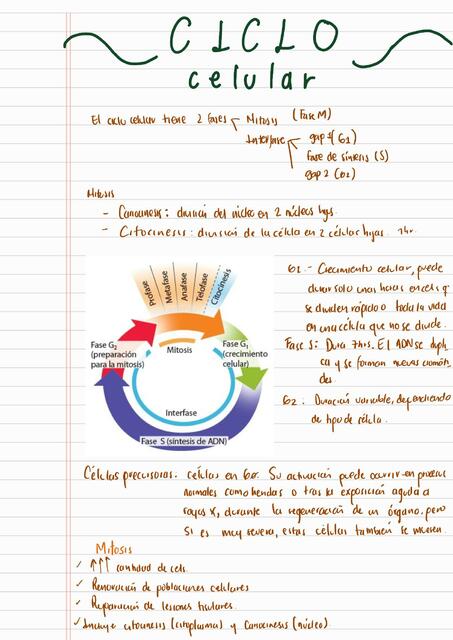 CICLO
celular
El ciclo celular tiene 2 fases Mitosis (Fase M)
Interfase gap 1 (G1)
Fase de síntesis (S)
gap 2 (G2)
Mitosis
- Cariocinesis: división del núcleo en 2 núcleos hijos.
- Citocinesis: división de la célula en 2 células hijas. 1hr.
Profase
Metafase
Anafase
Telofase
Citocinesis
Fase G2
(preparación
para la mitosis)
Mitosis
Fase G1
(crecimiento
celular)
Interfase
Fase S (síntesis de ADN)
G1.- Crecimiento celular, puede
durar solo unas horas en cels q
se dividen rápido o toda la vida
en una célula que no se divide.
Fase S: Dura 7hrs. El ADN se dupli
ca y se forman nuevas cromáti
des.
G2: Duración variable, dependiendo
de tipo de célula.
Células precursoras: células en G0. Su activación puede ocurrir en procesos
normales como heridas o tras la exposición aguda a
rayos X, durante la regeneración de un órgano. pero
si es muy severa, estas células también se mueren.
Mitosis
✓ ↑↑↑ cantidad de cels.
✓ Renovación de poblaciones celulares
✓ Reparación de lesiones tisulares.
✓ Incluye citocinesis (citoplasma) y Cariocinesis (núcleo)